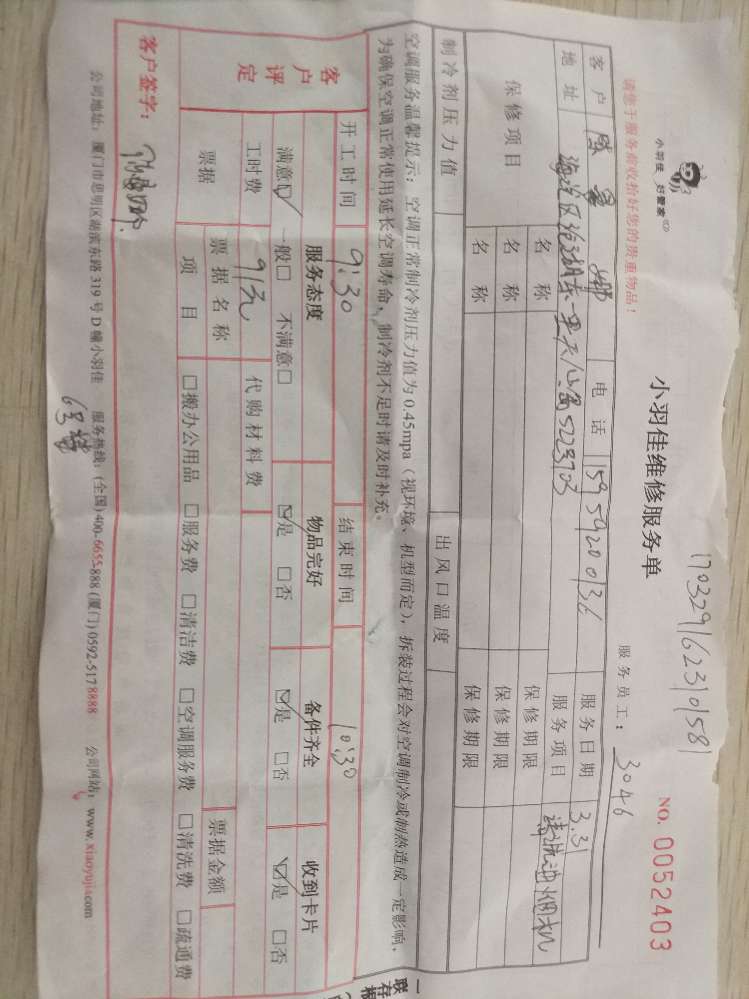 小羽佳 好管家
请您于服务前收拾好您的贵重物品!
1703291623101581
小羽佳维修服务单
NO. 0052403
服务员工: 3046
客户 电话 15959200136 服务日期 3.31
地址 服务项目 清洗油烟机
保修项目 名称 保修期限
名称 保修期限
名称 保修期限
制冷剂压力值 出风口温度
空调服务温馨提示:空调正常制冷剂压力值为0.45mpa(视环境、机型而定),拆装过程会对空调制冷或制热造成一定影响,
为确保空调正常使用延长空调寿命,制冷剂不足时请及时补充。
开工时间 9:30 结束时间 10:30
客户评定 服务态度 物品完好 备件齐全 收到卡片
满意☑ 一般□ 不满意□ ☑是 □否 ☑是 □否 ☑是 □否
工时费 91元 代购材料费
票据 票据名称 票据金额
项目 □搬办公用品 □服务费 □清洁费 □空调服务费 □清洗费 □疏通费
客户签字:
公司地址:厦门市思明区湖滨东路319号D幢小羽佳 服务热线:(全国)400-6655-888 (厦门)0592-5178888 公司网站:www.xiaoyujia.com
一联存根